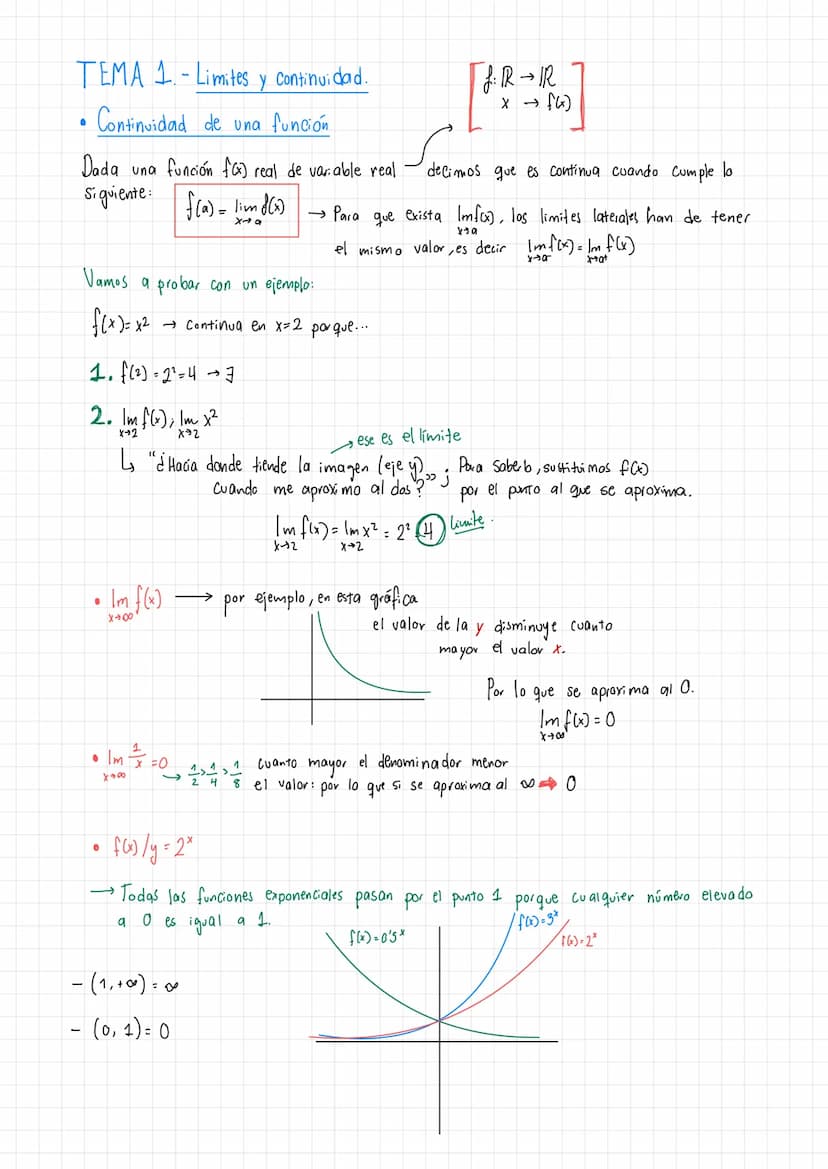 TEMA 1.- Limites y continuidad.
f: ℝ → ℝ
x → f(x)
• Continuidad de una función
Dada una función f(x) real de variable real decimos que es continua cuando cumple lo
siguiente:
f(a) = lim f(x)
x→a
→ Para que exista lim f(x), los limites laterales han de tener
x→a
el mismo valor, es decir lim f(x) = lim f(x)
x→a⁻ x→a⁺
Vamos a probar con un ejemplo:
f(x) = x² → Continua en x=2 porque...
1. f(2) = 2² = 4 → ∃
2. lim f(x); lim x²
x→2 x→2
ese es el límite
↳ "¿Hacia donde tiende la imagen (eje y)
cuando me aproximo al dos?" ; Para saberlo, sustituimos f(x)
por el punto al que se aproxima.
lim f(x) = lim x² = 2² = 4 limite.
x→2 x→2
• lim f(x) → por ejemplo, en esta gráfica
x→∞
el valor de la y disminuye cuanto
mayor el valor x.
Por lo que se aproxima al 0.
lim f(x) = 0
x→∞
• lim 1/x = 0
x→∞
→ 1/2 > 1/4 > 1/8 cuanto mayor el denominador menor
el valor: por lo que si se aproxima al ∞ → 0
• f(x)/y = 2ˣ
→ Todas las funciones exponenciales pasan por el punto 1 porque cualquier número elevado
a 0 es igual a 1.
f(x) = 0'5ˣ
f(x) = 3ˣ
f(x) = 2ˣ
- (1, +∞) = ∞
- (0, 1) = 0